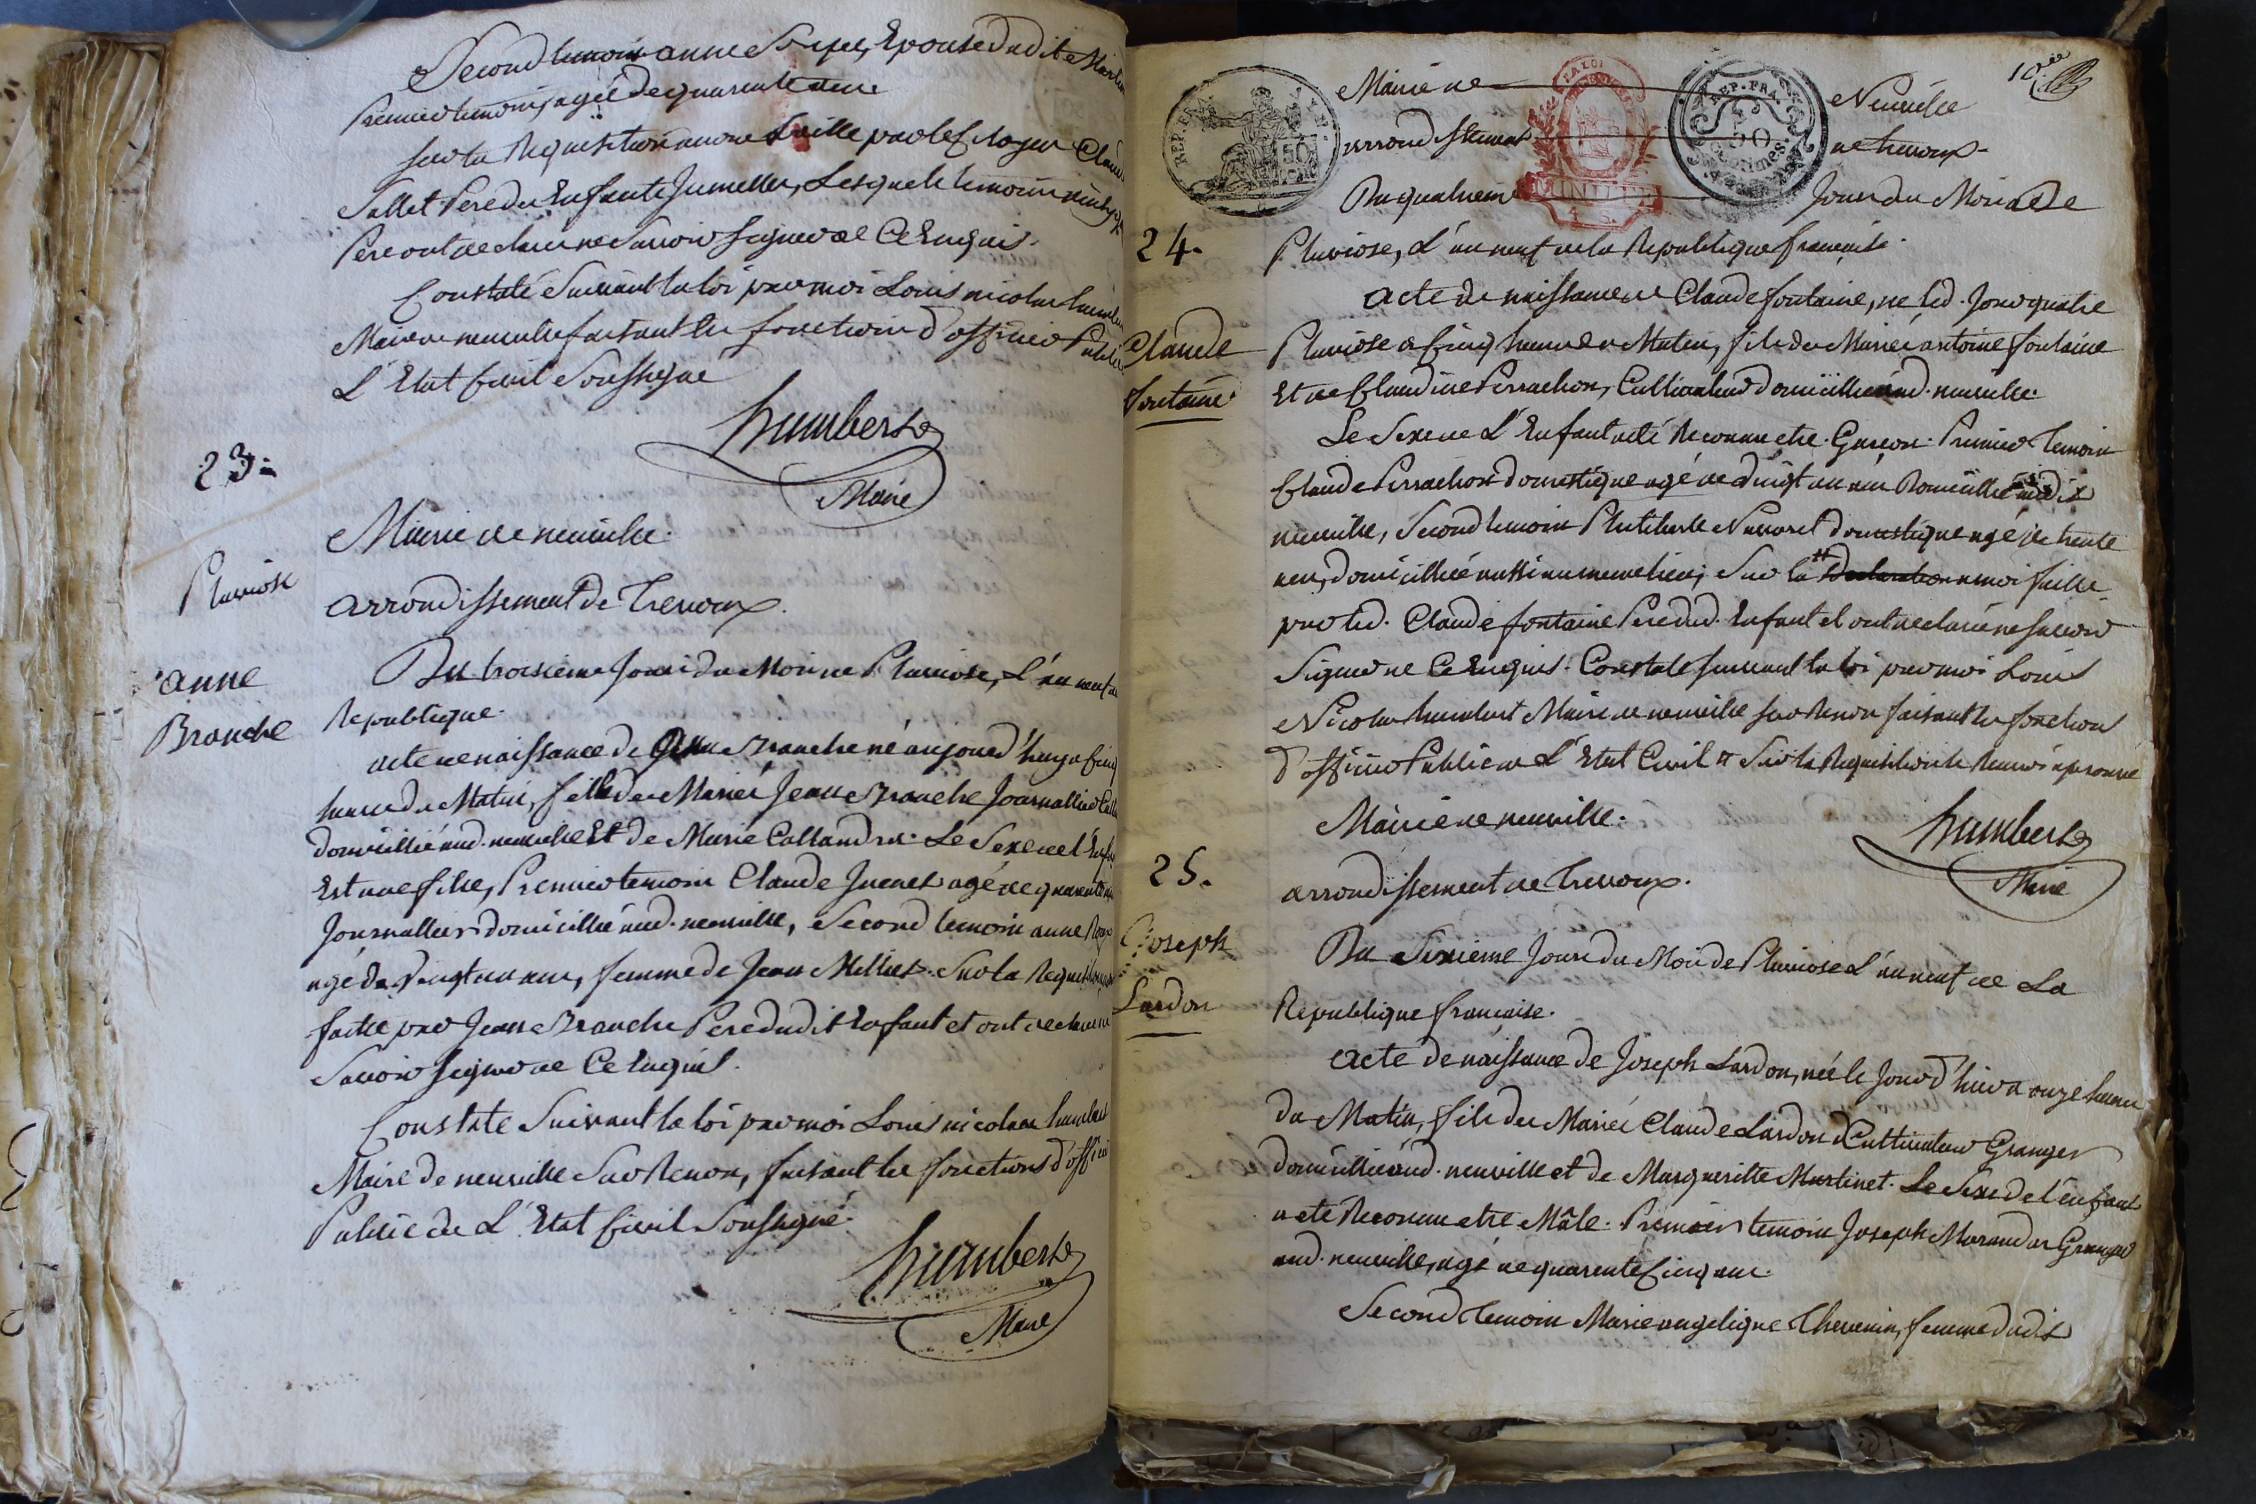 Second temoin anne Epouse dudit
Premier temoin, agée de quarante ans.
Sur la Requisition a moi faitte par le Citoyen Claude
Sallet Pere des Enfants Jumelles, Lesquels temoins ainsi q
Pere ont declaré ne Savoir Signer de Ce Enquis.
Constaté Suivant la loi par moi Louis nicolas humbert
Maire de neuville faisant les fonctions d'officier Public
L'Etat Civil Soussigné
humbert
Maire
23.
Mairie de neuville.
Pluviose
arrondissement de Trevoux.
anne
Branche
Du troisieme Jour du Mois de Pluviose, L'an neuf de
Republique.
acte de naissance de Branche né aujourd'huy a Cinq
heures du Matin, fille de Marié Jean Branche Journallier
domicillié aud. neuville Et de Marie Callandras. Le Sexe de l'Enfant
Est une fille, Premier temoin Claude Juenet agé de quarante
Journallier domicillié aud. neuville, Second temoin anne
agé de Vingt un ans, femme de Jean Millet. Sur la Requisition
faitte par Jean Branche Pere dudit Enfant et ont declaré ne
Savoir Signer de Ce Enquis.
Constaté Suivant la loi par moi Louis nicolas humbert
Maire de neuville Sur Renon, faisant les fonctions d'officier
Public de L'Etat Civil Soussigné.
humbert
Maire
Mairie de Neuville
arrondissement de trevoux.
REP. FRA.
50
CENTIMES
LA LOI
MINUTE
24.
Du quatrieme Jour du Mois de
Pluviose, L'an neuf de la Republique française.
Claude
fontaine
acte de naissance de Claude fontaine, ne led. Jour quatre
Pluviose a Cinq heures du Matin, fils de Marié antoine fontaine
Et de Claudine Perrachon, Cultivateur domicillié aud. neuville.
Le Sexe de L'Enfant a eté Reconnu etre Garçon. Premier Temoin
Claude Perrachon domestique agé de Vingt un ans Domicillié audit
neuville, Second temoin Philiberte Navoret domestique agé de trente
ans, domicilliée aussi au meme lieu, Sur la # Declaration a moi faitte
par led. Claude fontaine Pere dud. Enfant et ont declaré ne Savoir
Signer de Ce Enquis. Constaté Suivant la loi par moi Louis
Nicolas humbert Maire de neuville Sur Renon faisant les fonctions
d'officier Public de L'Etat Civil # Sur la Requisition le Renvoi aprouvé
humbert
Maire
Mairie de neuville.
25.
arrondissement de Trevoux.
Joseph
Lardon
Du Sixieme Jour du Mois de Pluviose L'an neuf de La
Republique française.
acte de naissance de Joseph Lardon, née le Jour d'hier a onze heures
du Matin, fils de Marié Claude Lardon Cultivateur Granger
domicillié aud. neuville et de Margueritte Martinet. Le Sexe de l'Enfant
a eté Reconnu etre Mâle. Premier temoin Joseph Morandas Granger
aud. neuville, agé de quarante Cinq ans.
Second Temoin Marie angelique Thevenin, femme dudit